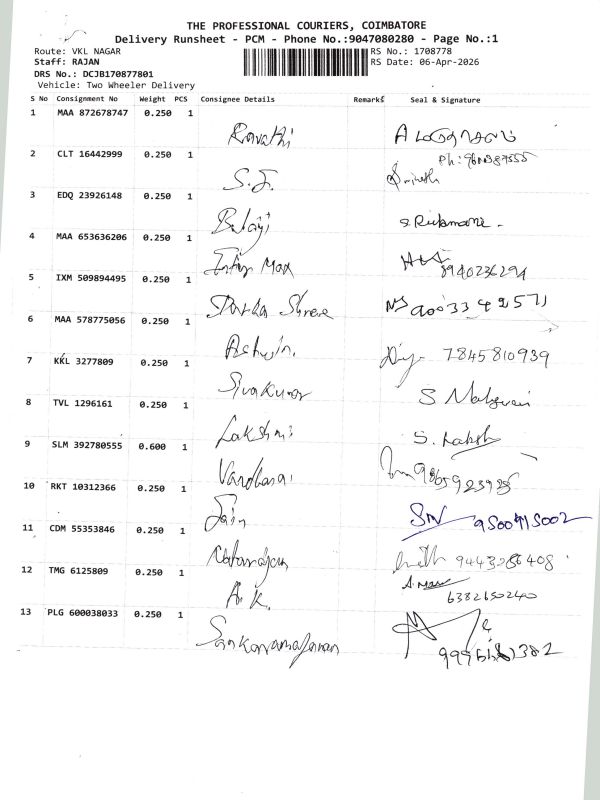 THE PROFESSIONAL COURIERS, COIMBATORE
Delivery Runsheet - PCM - Phone No.:9047080280 - Page No.:1
Route: VKL NAGAR
RS No.: 1708778
Staff: RAJAN
RS Date: 06-Apr-2026
DRS No.: DCJB170877801
Vehicle: Two Wheeler Delivery
S No Consignment No Weight PCS Consignee Details Remarks Seal & Signature
1 MAA 872678747 0.250 1
Revathi
2 CLT 16442999 0.250 1
Ph:
S.J.
3 EDQ 23926148 0.250 1
Balaji S. Rukmani.
4 MAA 653636206 0.250 1
Max 8940236294
5 IXM 509894495 0.250 1
Shree
6 MAA 578775056 0.250 1
Ashwin. 7845810939
7 KKL 3277809 0.250 1
Sivakumar S
8 TVL 1296161 0.250 1
Lakshmi S. Laksh
9 SLM 392780555 0.600 1
Vardharai
10 RKT 10312366 0.250 1
Jain
11 CDM 55353846 0.250 1
Natarajan
12 TMG 6125809 0.250 1
A.K. 6382650240
13 PLG 600038033 0.250 1
Sankaranarayanan